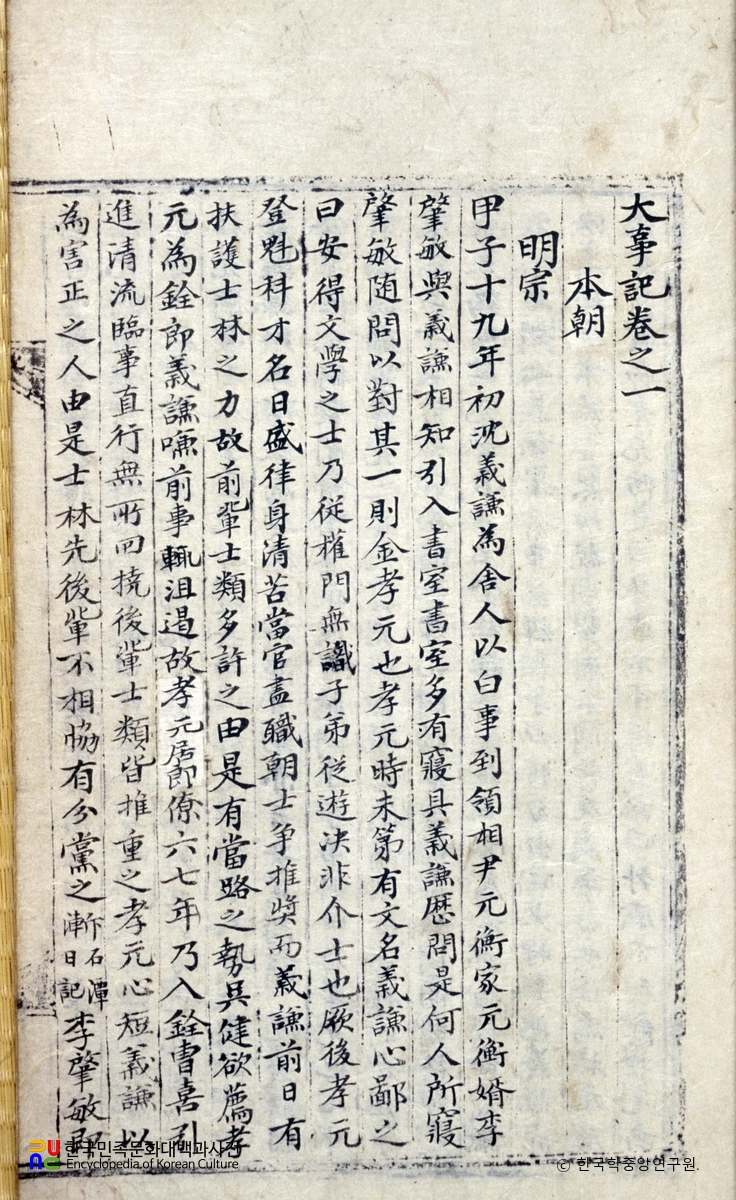 大事記卷之一
本朝
明宗
甲子十九年初沈義謙為舍人以白事到領相尹元衡家元衡婿李
肇敏與義謙相知引入書室書室多有寢具義謙歷問是何人所寢
肇敏随問以對其一則金孝元也孝元時未第有文名義謙心鄙之
曰安得文學之士乃從權門無識子弟從遊決非介士也厥後孝元
登魁科才名日盛律身清苦當官盡職朝士爭推奬而義謙前日有
扶護士林之力故前輩士類多許之由是有當路之勢吳健欲薦孝
元為銓郎義謙嗛前事輒沮遏故孝元居郎僚六七年乃入銓曹喜引
進清流臨事直行無所回撓後輩士類皆推重之孝元心短義謙以
為害正之人由是士林先後輩不相協有分黨之漸
石潭
日記
李肇敏
한국민족문화대백과사전
Encyclopedia of Korean Culture
© 한국학중앙연구원.